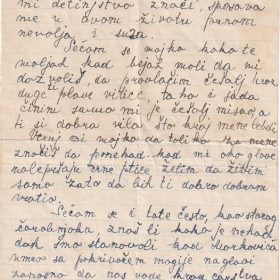 mi detinjstvo znači, spasava
me u ovom životu punom
nevolja i suza.
Sećam se majko kako te
moljah kad bejah moli da mi
dozvoliš da provlačim češalj kroz
duge plave vitice, ta ha i sada
činim samo mi je češalj misao a
ti si dobra vila što kraj mene
Veruj mi majko da toliko za mene
značiš da ponekad kad mi oko glave
nalepušaju crne ptice želim da živim
samo zato da bih ti dobro dobrom
vratio.
Sećam se i tate često, kao starog
čarobnjaka, znaš li kako je nekada
dok smo stanovali kod Morkovića
umeo sa pokrivačem magije na glavi
zanosno da nas vodi kroz carstva